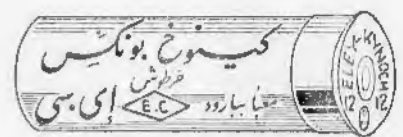 کینوخ بونکس
خرطوش
معبأ ببارود <E.C> إی سی
ELEY-KYNOCH
12 12